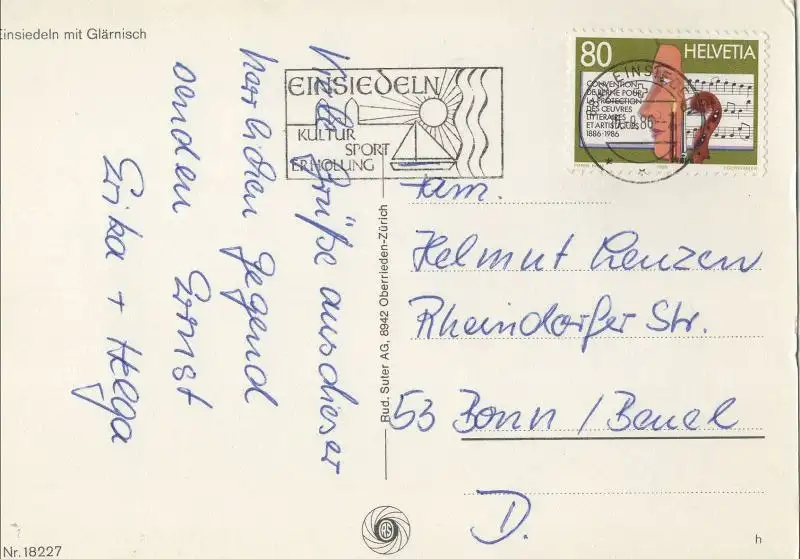 Einsiedeln mit Glärnisch
Viele Grüße aus dieser
herrlichen Gegend
senden Ernst
Erika + Helga
EINSIEDELN
KULTUR
SPORT
ERHOLUNG
80
HELVETIA
CONVENTION
DE BERNE POUR
LA PROTECTION
DES ŒUVRES
LITTERAIRES
ET ARTISTIQUES
1886-1986
EINSIEDELN
Fam.
Helmut Lenzen
Rheindorfer Str.
53 Bonn / Beuel
D.
Rud. Suter AG, 8942 Oberrieden-Zürich
Nr. 18227
h